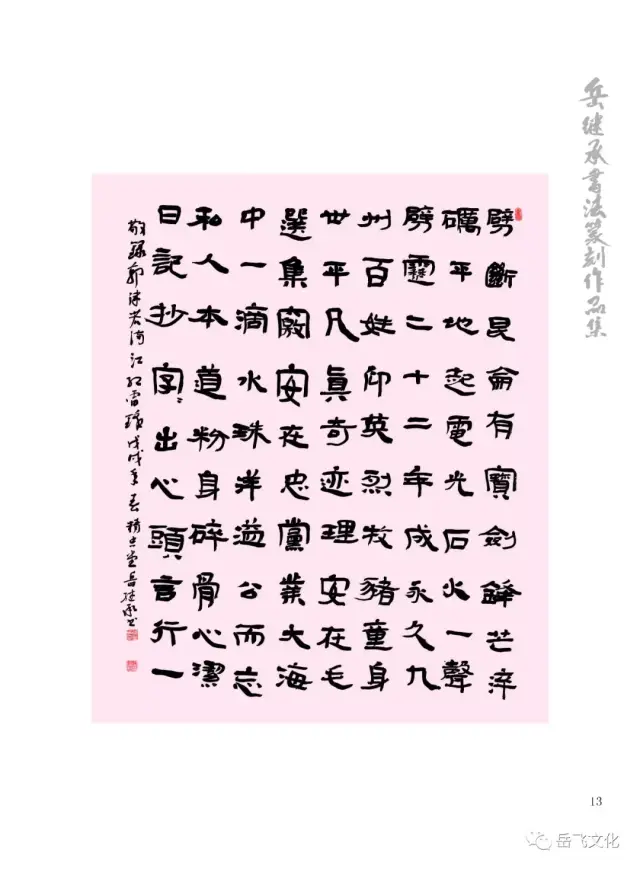 岳继承書法篆刻作品集
劈斷昆侖有寶劍鋒芒淬
礪平地起電光石火一聲
劈靂二十二年成永久九
州百姓仰英烈牧豬童身
世平凡眞奇迹理安在毛
選集竅安在忠黨業大海
中一滴水珠洋溢公而忘
私人本道粉身碎骨心潔
日記抄字〻出心頭言行一
敬録郭沫若满江红雷鋒戊戌年春精忠堂岳继承書
13
岳飞文化